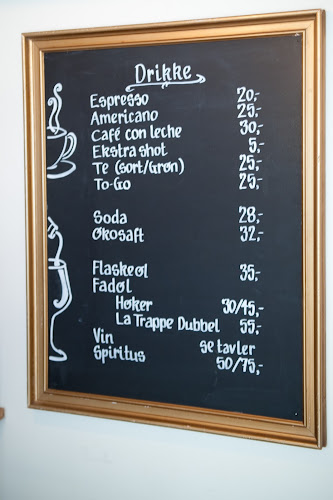 Drikke
Espresso 20,-
Americano 25,-
Café con leche 30,-
Ekstra shot 5,-
Te (sort/Grøn) 25,-
To-Go 25,-
Soda 28,-
Økosaft 32,-
Flaskeøl 35,-
Fadøl
Høker 30/45,-
La Trappe Dubbel 55,-
Vin se tavler
Spiritus 50/75,-